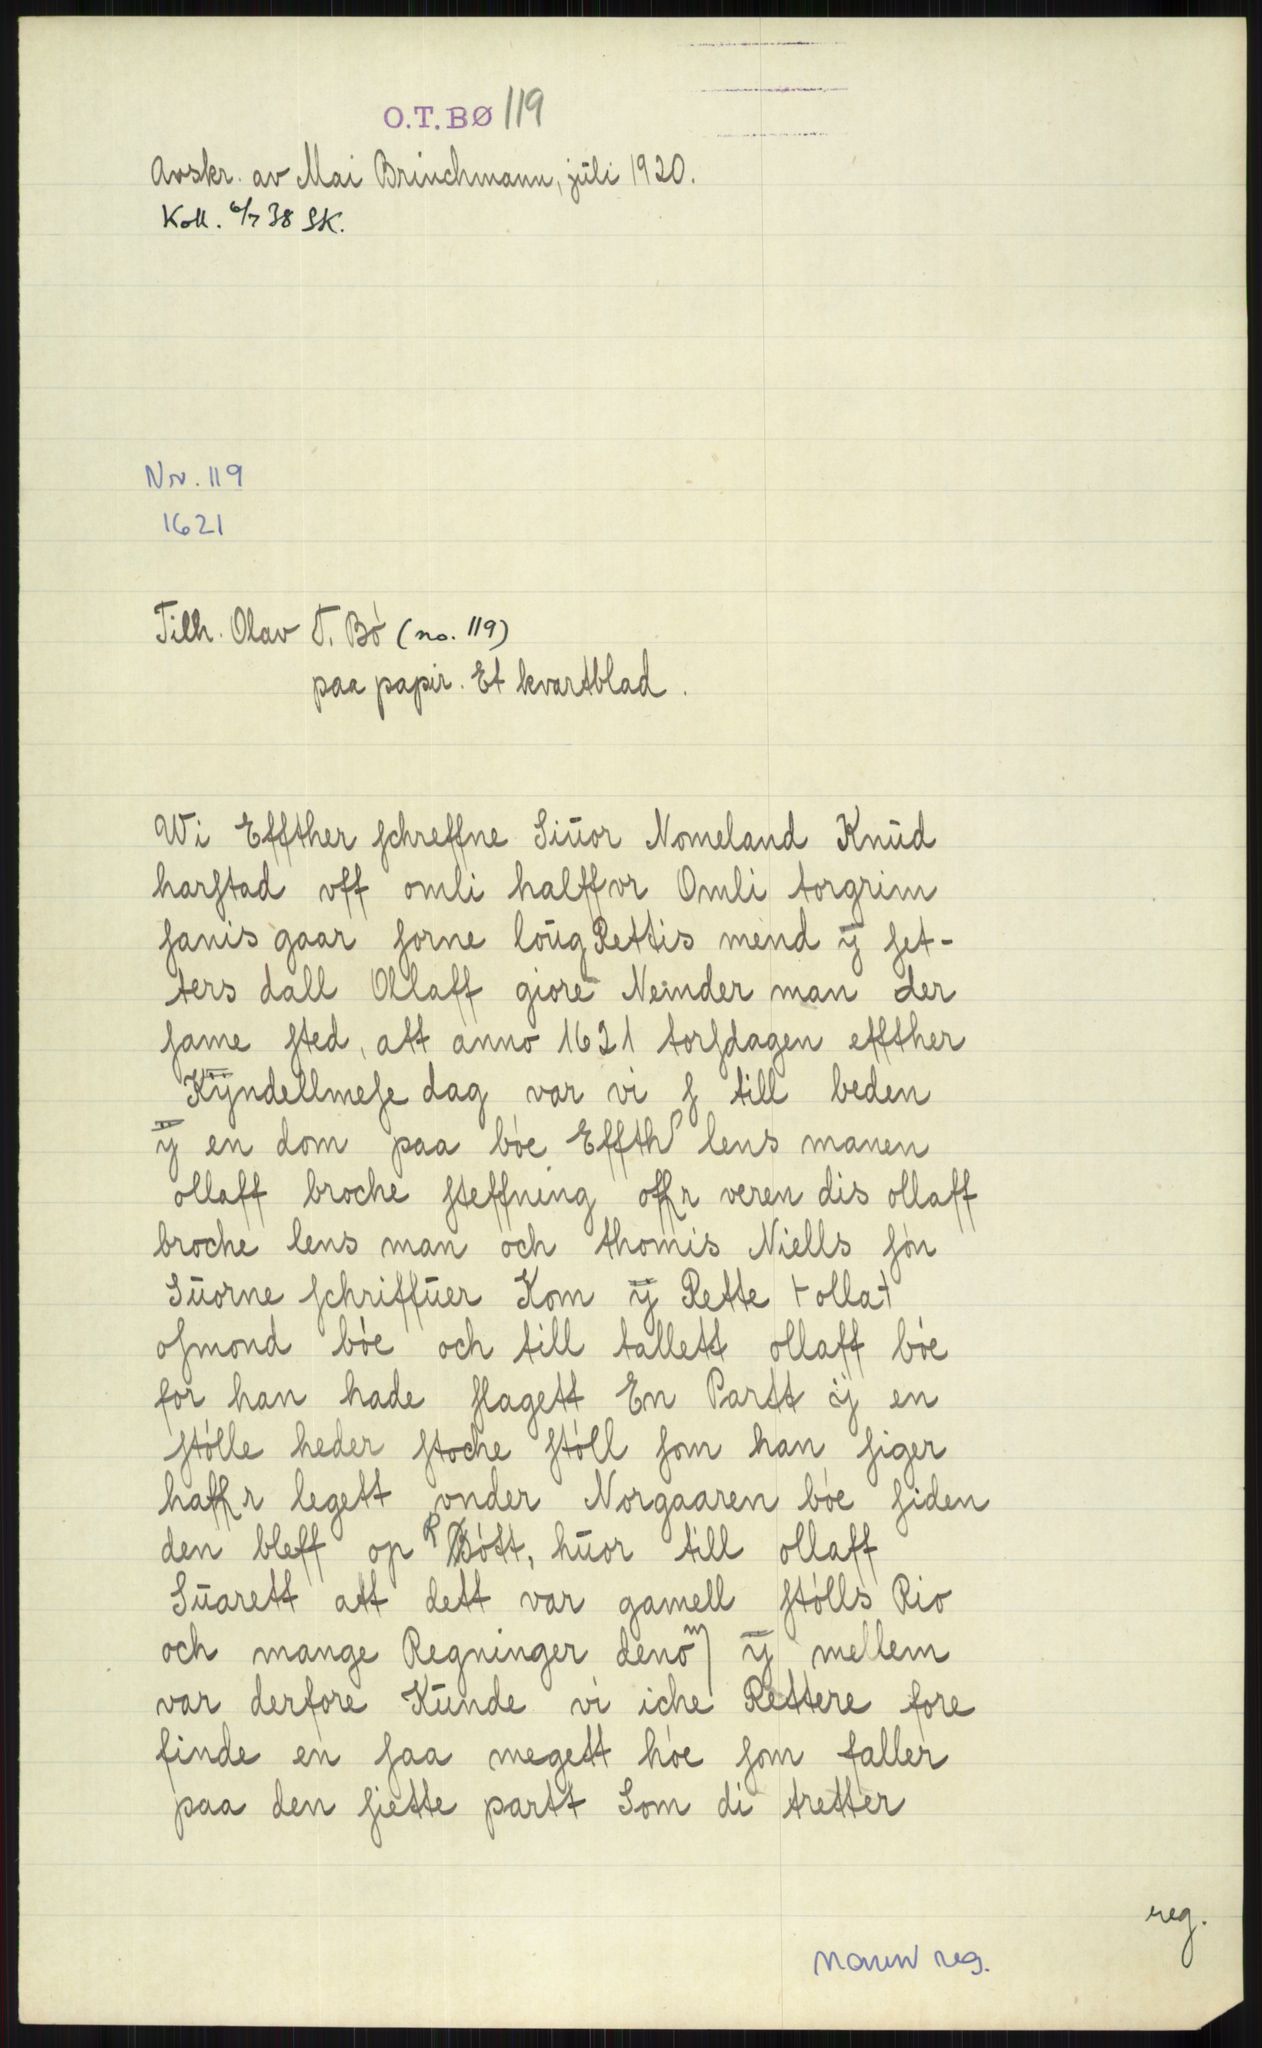 O.T.BØ 119
Avskr. av Mai Brinchmann, juli 1920.
Koll. 6/7 38 SK.
Nr. 119
1621
Tilh. Olav T. Bó (no. 119)
paa papir. Et kvartblad.
Wi Effther ſchreffne Siuor Nomeland Knud
harſtad vff omli halffvr Omli torgrim
ſanis gaar ſorne loug Rettis mend ÿ ſet-
ters dall Ollaff giore Nemder man der
ſame ſted, att anno 1621 torſdagen effther
Kÿndellmeſe dag var vi ſ till beden
ÿ en dom paa bóe Effth lens manen
ollaff broche ſteffning offr veren dis ollaff
broche lens man och thomis Niells ſón
Suorne ſchriffuer Kom ÿ Rette + olla+
oſmond bóe och till tallett ollaff bóe
for han hade ſlagett En Partt ÿ en
ſtólle heder ſtoche ſtóll ſom han ſiger
haffr legett vnder Norgaaren bóe ſiden
den bleff op Rótt, huor till ollaff
Suarett att dett var gamell ſtólls Rio
och mange Regninger denom ÿ mellem
var derfore Kunde vi iche Rettere fore
finde en ſaa megett hóe ſom faller
paa den ſiette partt Som di tretter
reg.
navnreg.